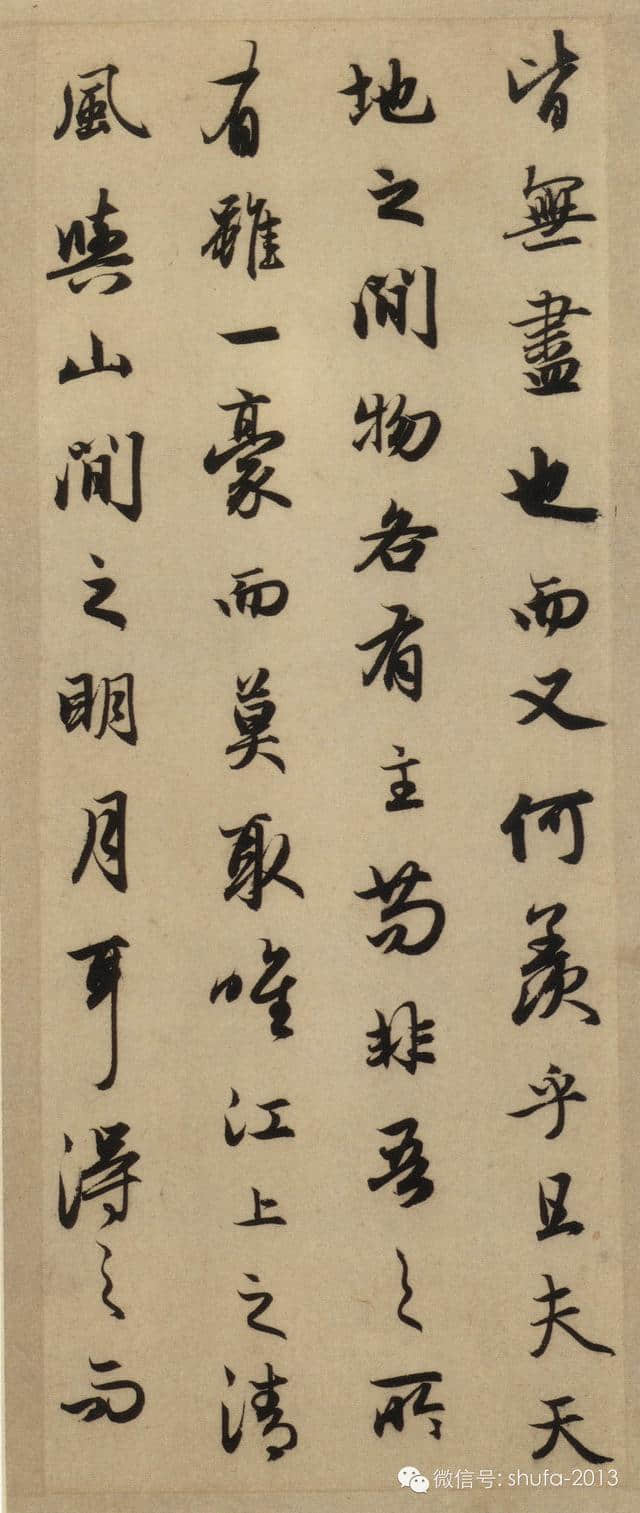 皆無盡也而又何羨乎且夫天
地之間物各有主苟非吾之所
有雖一豪而莫取唯江上之清
風與山間之明月耳得之而
微信号: shufa-2013